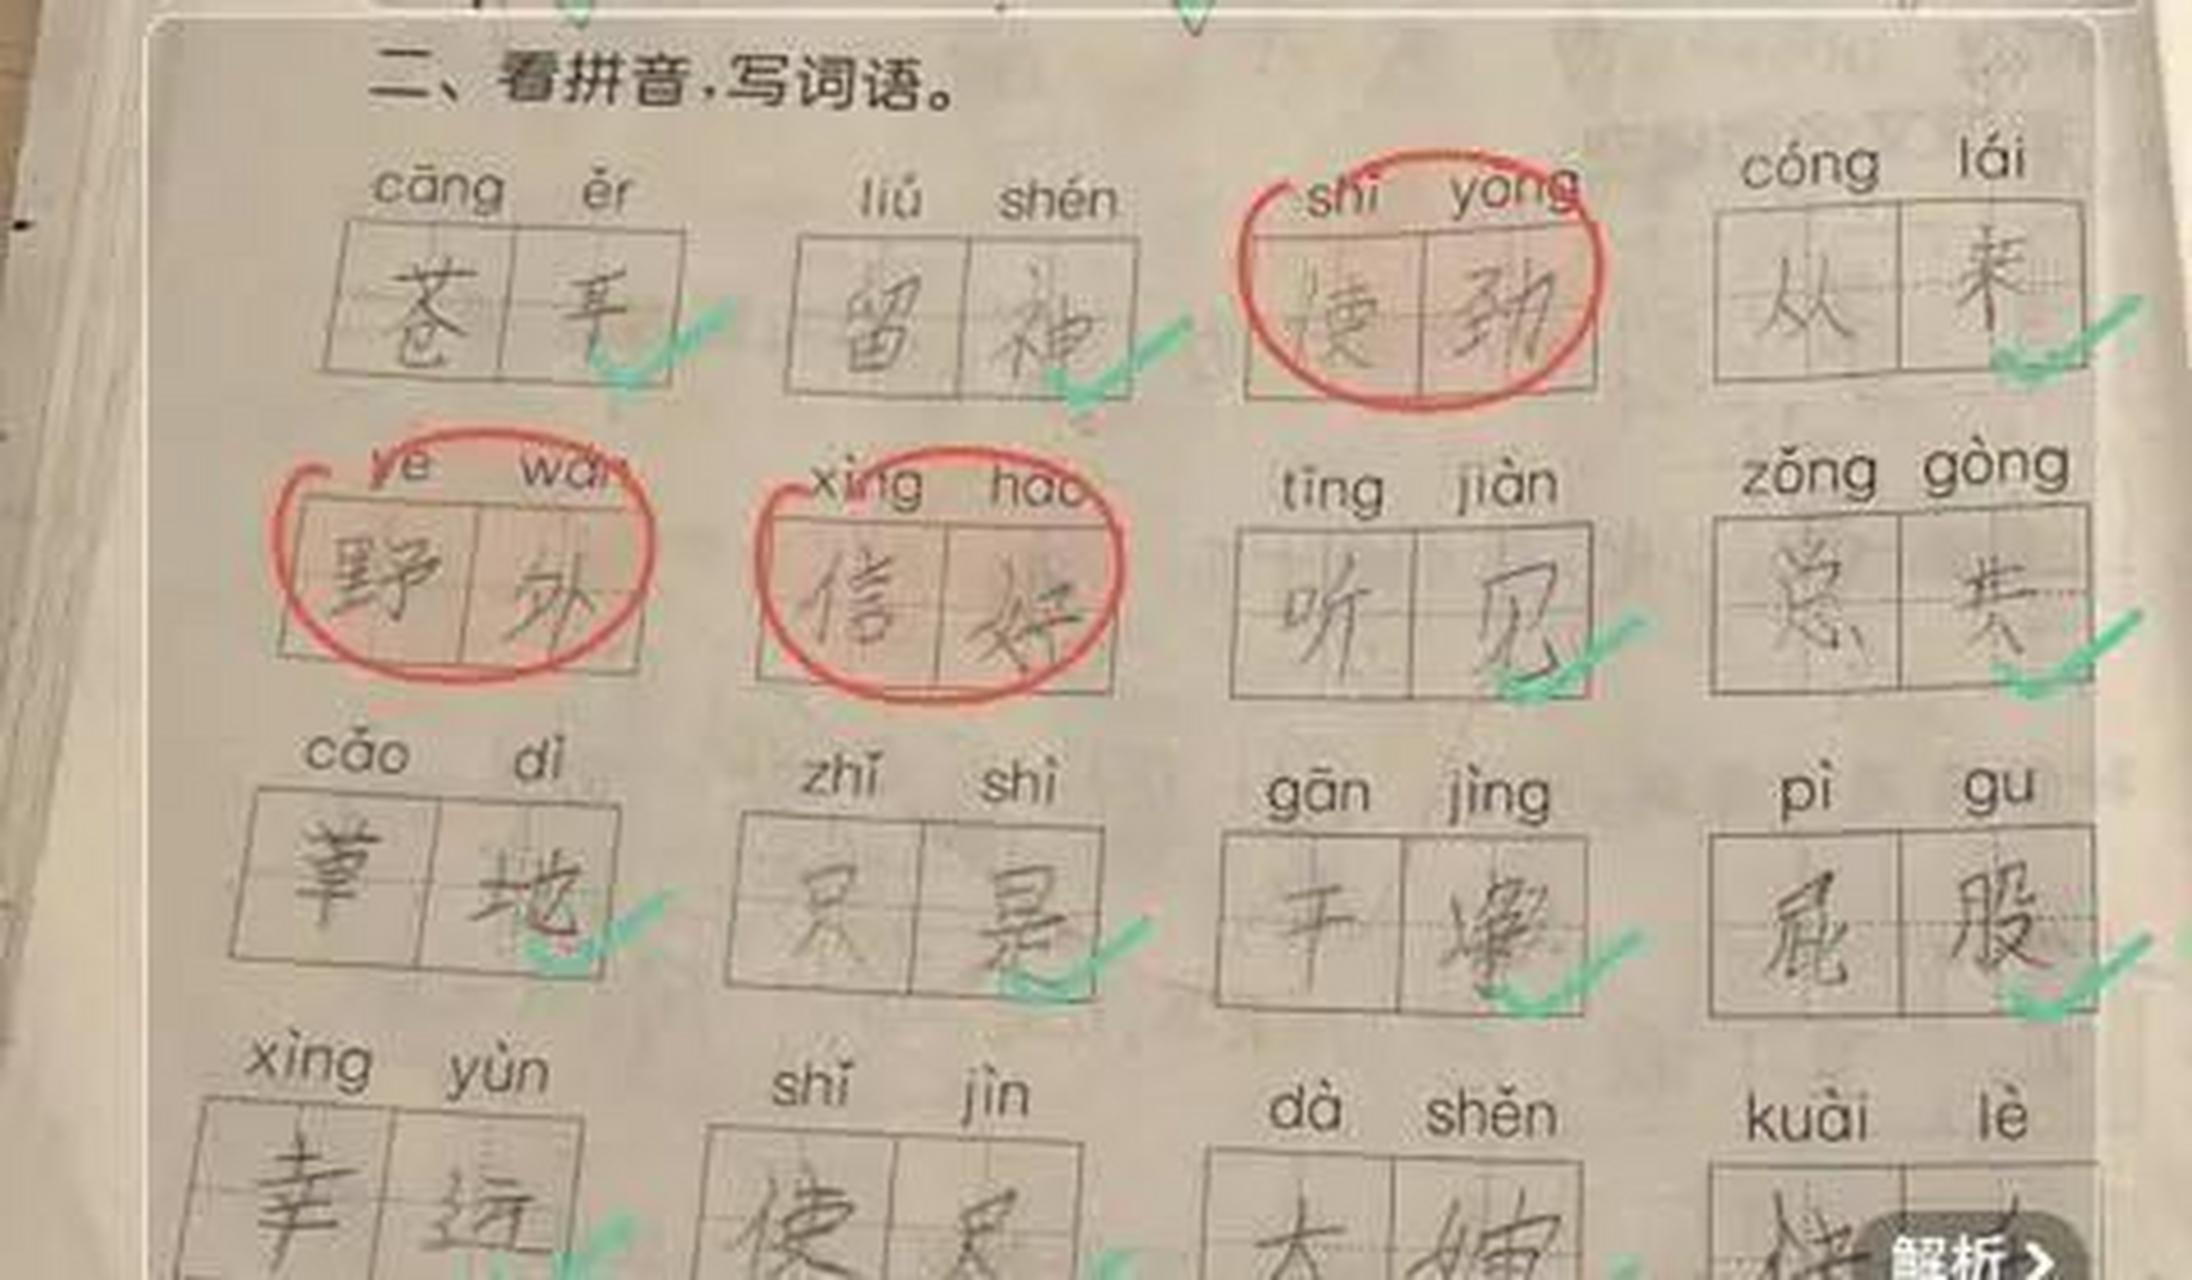 二、看拼音,写词语。
cāng ěr liú shén shǐ yòng cóng lái
苍耳 留神 使劲 从来
yě wài xìng hǎo tīng jiàn zǒng gòng
野外 信好 听见 总共
cǎo dì zhǐ shì gān jìng pì gu
草地 只是 干净 屁股
xìng yùn shǐ jìn dà shěn kuài lè
幸运 使尽 大婶 快
解析 >